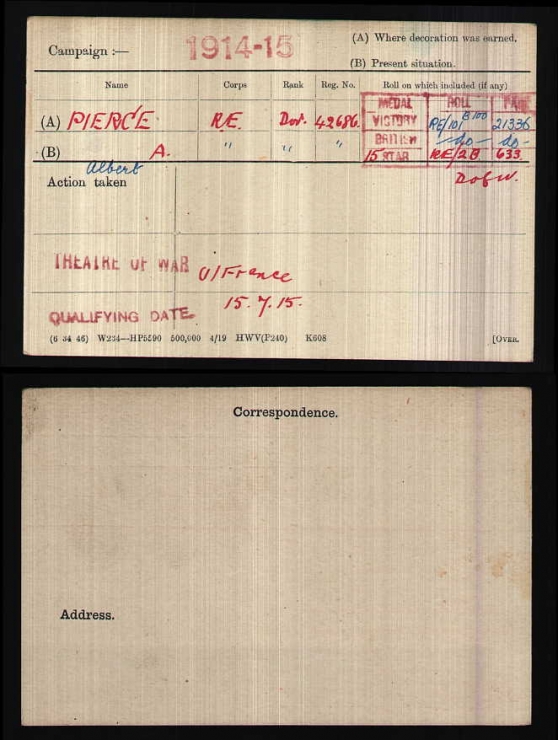 Campaign :— 1914-15 (A) Where decoration was earned.
(B) Present situation.
Name Corps Rank Reg. No. Roll on which included (if any)
MEDAL ROLL PAGE
(A) PIERCE R.E. Dvr. 42686. VICTORY RE/101 B100 21336
(B) A. " " " BRITISH -do- -do-
Albert 15 STAR RE/2B 633.
Action taken D of W.
THEATRE OF WAR (1)France
QUALIFYING DATE 15.7.15.
(6 34 46) W234—HP5590 500,000 4/19 HWV(P240) K608 [OVER.
Correspondence.
Address.